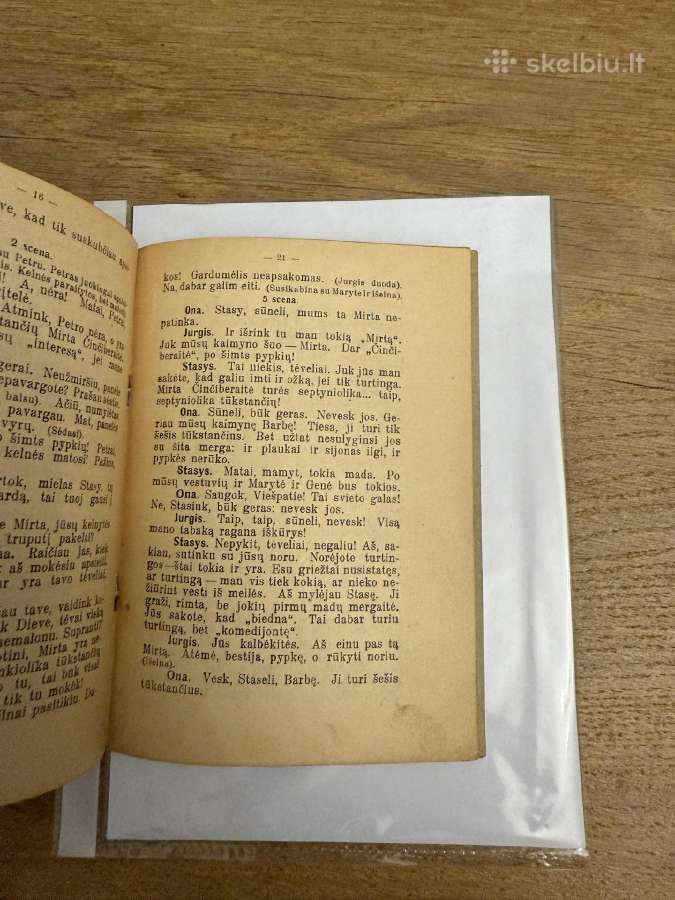 skelbiu.lt
— 16 —
ve, kad tik suskubčiau
2 scena.
Petru. Petras juokingai
Kelnės paraitytos, bet
A, nėra! Matai, Petrai,
Atmink, Petro nėra, o yra
Mirta Činčiberaitė.
„interesą“, jei mane
gerai. Neužmiršiu, panele
nepavargote? Prašau sėstis,
balsu). Ačiū, numylėtas
pavargau. Mat, panelės
vyrų. (Sėdasi).
šimts pypkių! Petrai,
kelnės matosi.
mielas Stasy, tų
tai tuoj gausi į
Mirta, jūsų kelnytės
truputį pakelti?
Raičiau jas, kiek
aš mokėsiu apsieiti.
yra tavo tėveliai.
tave, vaidink ko-
Dieve, tėvai viską
nesmalonu. Supranti?
Mirta yra ne-
tūkstančių
tu, tai būk visai
tik tu mokė!
pasitikiu. Da-
— 21 —
kos! Gardumėlis neapsakomas. (Jurgis duoda).
Na, dabar galim eiti. (Susikabina su Maryte ir išeina).
5 scena
Ona. Stasy, sūneli, mums ta Mirta ne-
patinka.
Jurgis. Ir išrink tu man tokią „Mirtą“.
Juk mūsų kaimyno šuo — Mirta. Dar „Činči-
beraitė“, po šimts pypkių!
Stasys. Tai niekis, tėveliai. Juk jūs man
sakėte, kad galiu imti ir ožką, jei tik turtinga.
Mirta Činčiberaitė turės septyniolika... taip,
septyniolika tūkstančių!
Ona. Sūneli, būk geras. Nevesk jos. Ge-
riau mūsų kaimynę Barbę! Tiesa, ji turi tik
šešis tūkstančius. Bet užtat nesulyginsi jos
su šita merga: ir plaukai ir sijonas ilgi, ir
pypkės nerūko.
Stasys. Matai, mamyt, tokia mada. Po
mūsų vestuvių ir Marytė ir Genė bus tokios.
Ona. Saugok, Viešpatie! Tai svieto galas!
Ne, Stasink, būk geras: nevesk jos.
Jurgis. Taip, taip, sūneli, nevesk! Visą
mano tabaką ragana iškūrys!
Stasys. Nepykit, tėveliai, negaliu! Aš, sa-
kiau, sutinku su jūsų noru. Norėjote turtin-
gos—štai tokia ir yra. Esu griežtai nusistatęs,
ar turtingą — man vis tiek kokią, ar nieko ne-
žiūrint vesti iš meilės. Aš mylėjau Stasę. Ji
graži, rimta, be jokių pirmų madų mergaitė.
Jūs sakote, kad „biedna“. Tai dabar turiu
turtingą, bet „komedijontę“.
Jurgis. Jūs kalbėkitės. Aš einu pas tą
Mirtą. Atėmė, bestija, pypkę, o rūkyti noriu.
(Išeina).
Ona. Vesk, Staseli, Barbę. Ji turi šešis
tūkstančius.